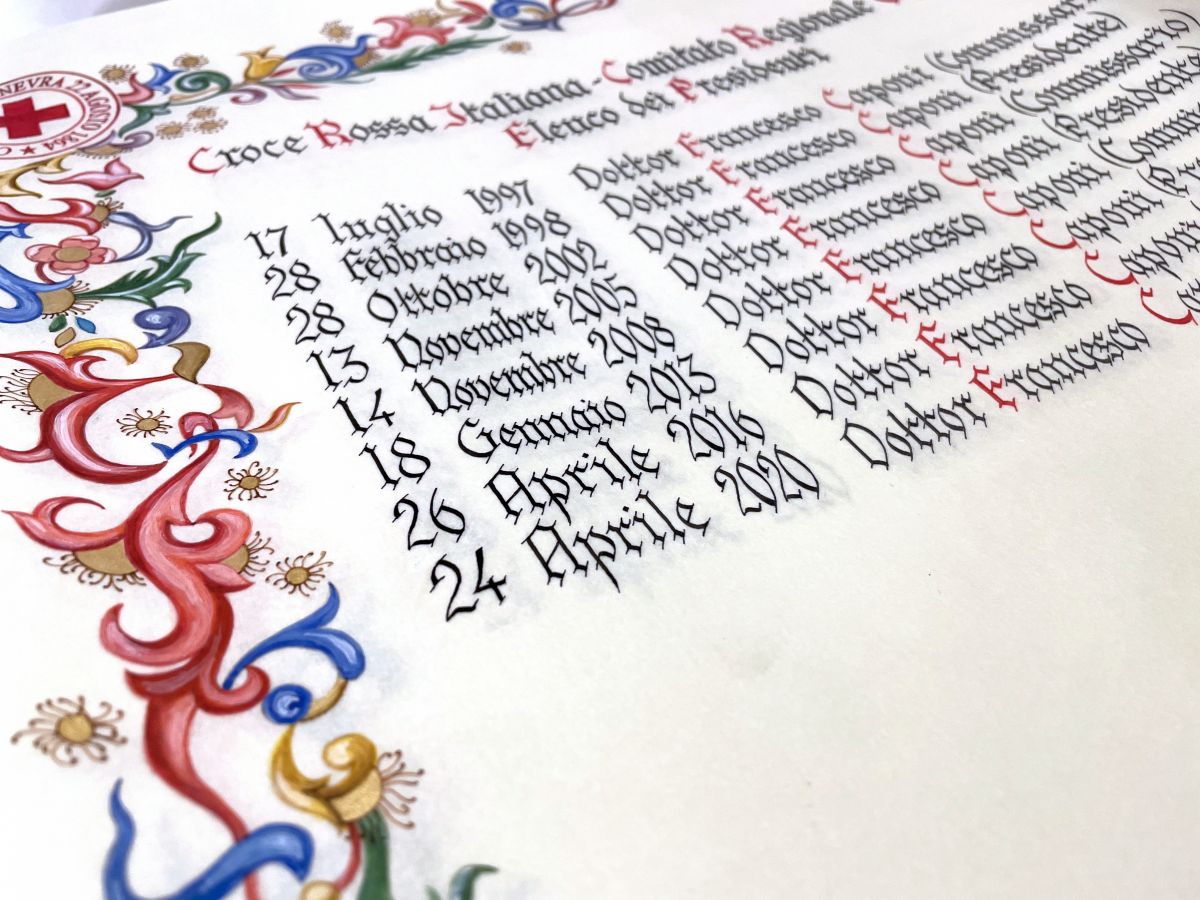 NEVRA 22 AGOSTO 1864 ★ C
Croce Rossa Italiana - Comitato Regionale
Elenco dei Presidenti
17 Luglio 1997 Dottor Francesco Caponi (Commissar
28 Febbraio 1998 Dottor Francesco Caponi (Presidente)
28 Ottobre 2002 Dottor Francesco Caponi (Commissario)
13 Novembre 2005 Dottor Francesco Caponi (Presidente
14 Novembre 2008 Dottor Francesco Caponi (Commis
18 Gennaio 2013 Dottor Francesco Caponi
26 Aprile 2016 Dottor Francesco Caponi
24 Aprile 2020 Dottor Francesco